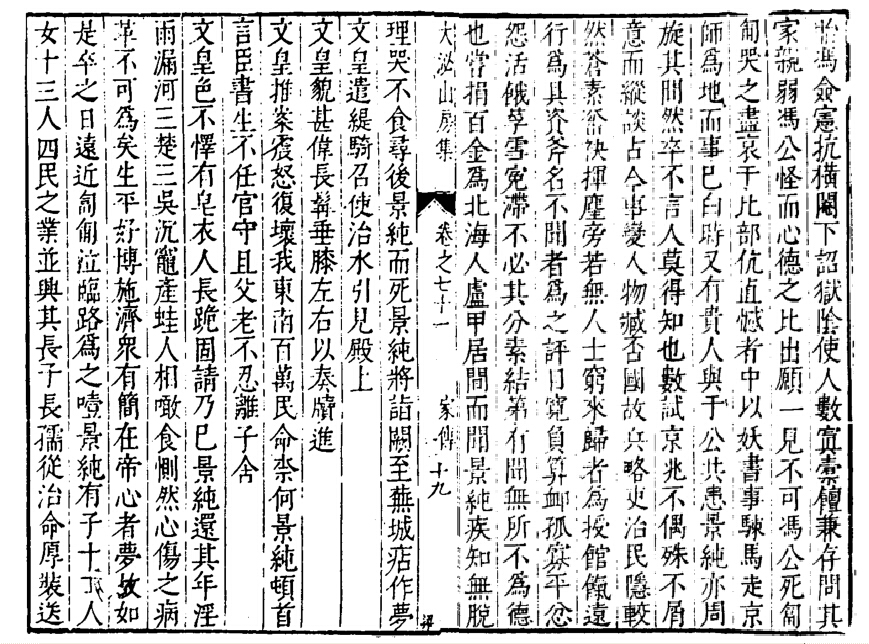 於馮僉憲抗橫閹下詔獄陰使人數寘橐饘兼存問其
家親弱馮公怪而心德之比出願一見不可馮公死匍
匐哭之盡哀于比部伉直憾者中以妖書事馳馬走京
師爲地而事巳白時又有貴人與于公共患景純亦周
旋其間然卒不言人莫得知也數試京兆不偶殊不屑
意而縱談古今事變人物臧否國故兵略吏治民隱較
然蒼素奮袂揮麈旁若無人士窮來歸者爲授館餼遠
行爲具資斧名不聞者爲之評目寬負算卹孤寡平忿
怨活餓莩雪寃滯不必其分素結第有聞無所不爲德
也嘗捐百金爲北海人盧甲居間而聞景純疾知無脫
大泌山房集 卷之七十一 家傳 十九
理哭不食尋後景純而死景純將詣闕至蕪城痁作夢
文皇遣緹騎召使治水引見殿上
文皇貌甚偉長髯垂膝左右以奏牘進
文皇推案震怒復壞我東南百萬民命柰何景純頓首
言臣書生不任官守且父老不忍離子舍
文皇色不懌有皂衣人長跪固請乃巳景純還其年淫
雨漏河三楚三吳沉竈產蛙人相噉食惻然心傷之病
革不可爲矣生平好博施濟衆有簡在帝心者夢故如
是卒之日遠近匍匐泣臨路爲之噎景純有子十人
女十三人四民之業並興其長子長孺從治命厚裝送